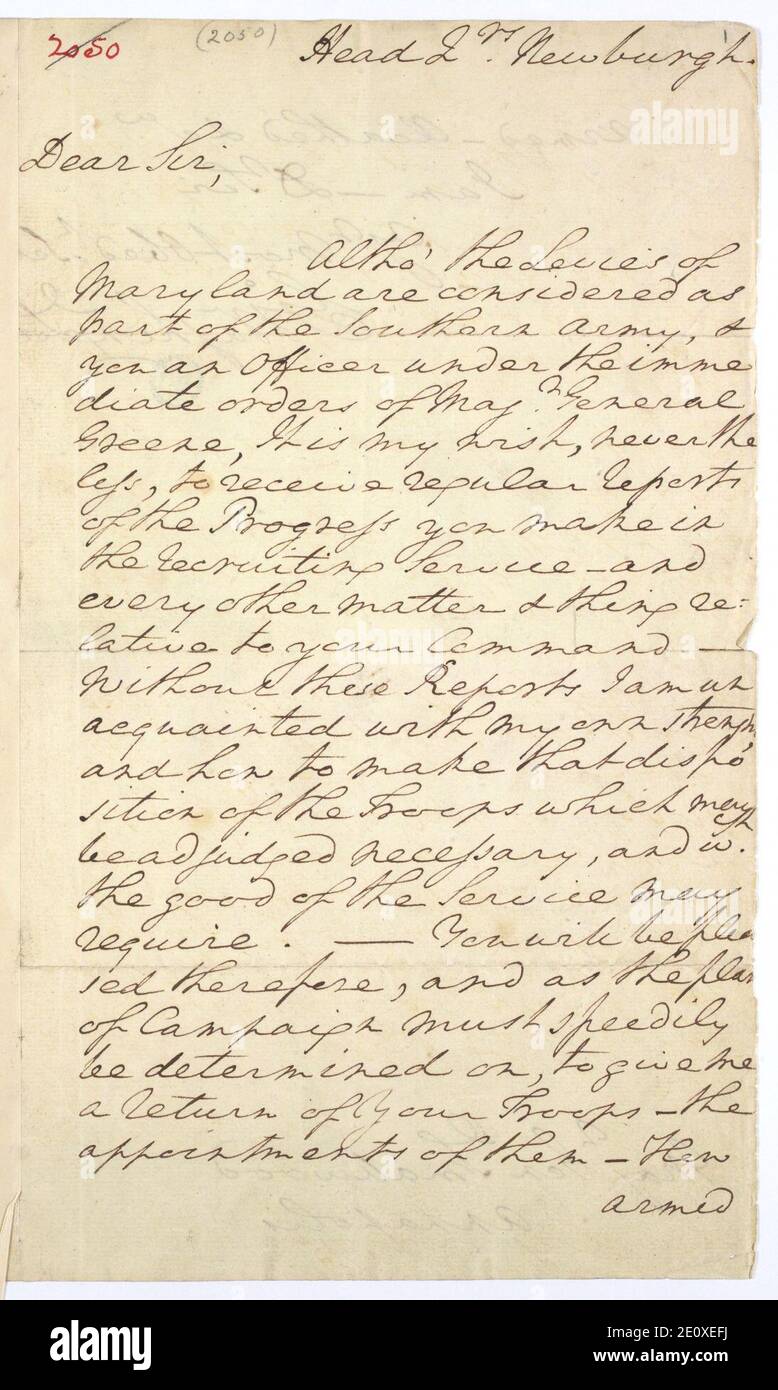 2050 (2050) Head Qrs. Newburgh.
Dear Sir,
Altho' the Levies of
Maryland are considered as
part of the Southern Army, &
you an Officer under the imme
diate orders of Majr. General
Greene, It is my wish, never the
less, to receive regular reports
of the Progress you make in
the recruiting Service – and
every other matter & thing re=
lative to your Command —
Without these Reports I am un
acquainted with my own strength,
and how to make that dispo
sition of the Troops which may
be adjudged necessary, and wch.
the good of the Service may
require. — You will be plea
sed therefore, and as the plan
of Campaign must speedily
be determined on, to give me
a return of Your Troops – the
appointments of them – How
armed
alamy
alamy
Image ID: 2E0XEFJ
www.alamy.com